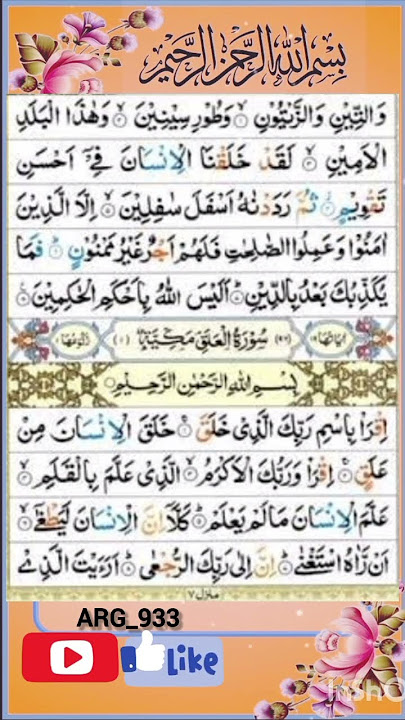 بِسْمِ اللهِ الرَّحْمٰنِ الرَّحِيْمِ
وَالتِّيْنِ وَالزَّيْتُوْنِ ۙ وَطُوْرِ سِيْنِيْنَ ۙ وَهٰذَا الْبَلَدِ
الْاَمِيْنِ ۙ لَقَدْ خَلَقْنَا الْاِنْسَانَ فِيْۤ اَحْسَنِ
تَقْوِيْمٍ ۫ ثُمَّ رَدَدْنٰهُ اَسْفَلَ سٰفِلِيْنَ ۙ اِلَّا الَّذِيْنَ
اٰمَنُوْا وَعَمِلُوا الصّٰلِحٰتِ فَلَهُمْ اَجْرٌ غَيْرُ مَمْنُوْنٍ ؕ فَمَا
يُكَذِّبُكَ بَعْدُ بِالدِّيْنِ ؕ اَلَيْسَ اللّٰهُ بِاَحْكَمِ الْحٰكِمِيْنَ
سُوْرَةُ الْعَلَقِ مَكِّيَّةٌ
بِسْمِ اللّٰهِ الرَّحْمٰنِ الرَّحِيْمِ
اِقْرَاْ بِاسْمِ رَبِّكَ الَّذِيْ خَلَقَ ۚ خَلَقَ الْاِنْسَانَ مِنْ
عَلَقٍ ۚ اِقْرَاْ وَرَبُّكَ الْاَكْرَمُ ۙ الَّذِيْ عَلَّمَ بِالْقَلَمِ ۙ
عَلَّمَ الْاِنْسَانَ مَا لَمْ يَعْلَمْ ؕ كَلَّاۤ اِنَّ الْاِنْسَانَ لَيَطْغٰۤى ۙ
اَنْ رَّاٰهُ اسْتَغْنٰى ؕ اِنَّ اِلٰى رَبِّكَ الرُّجْعٰى ؕ اَرَءَيْتَ الَّذِيْ
منزل ٧
ARG_933
Like
InShO